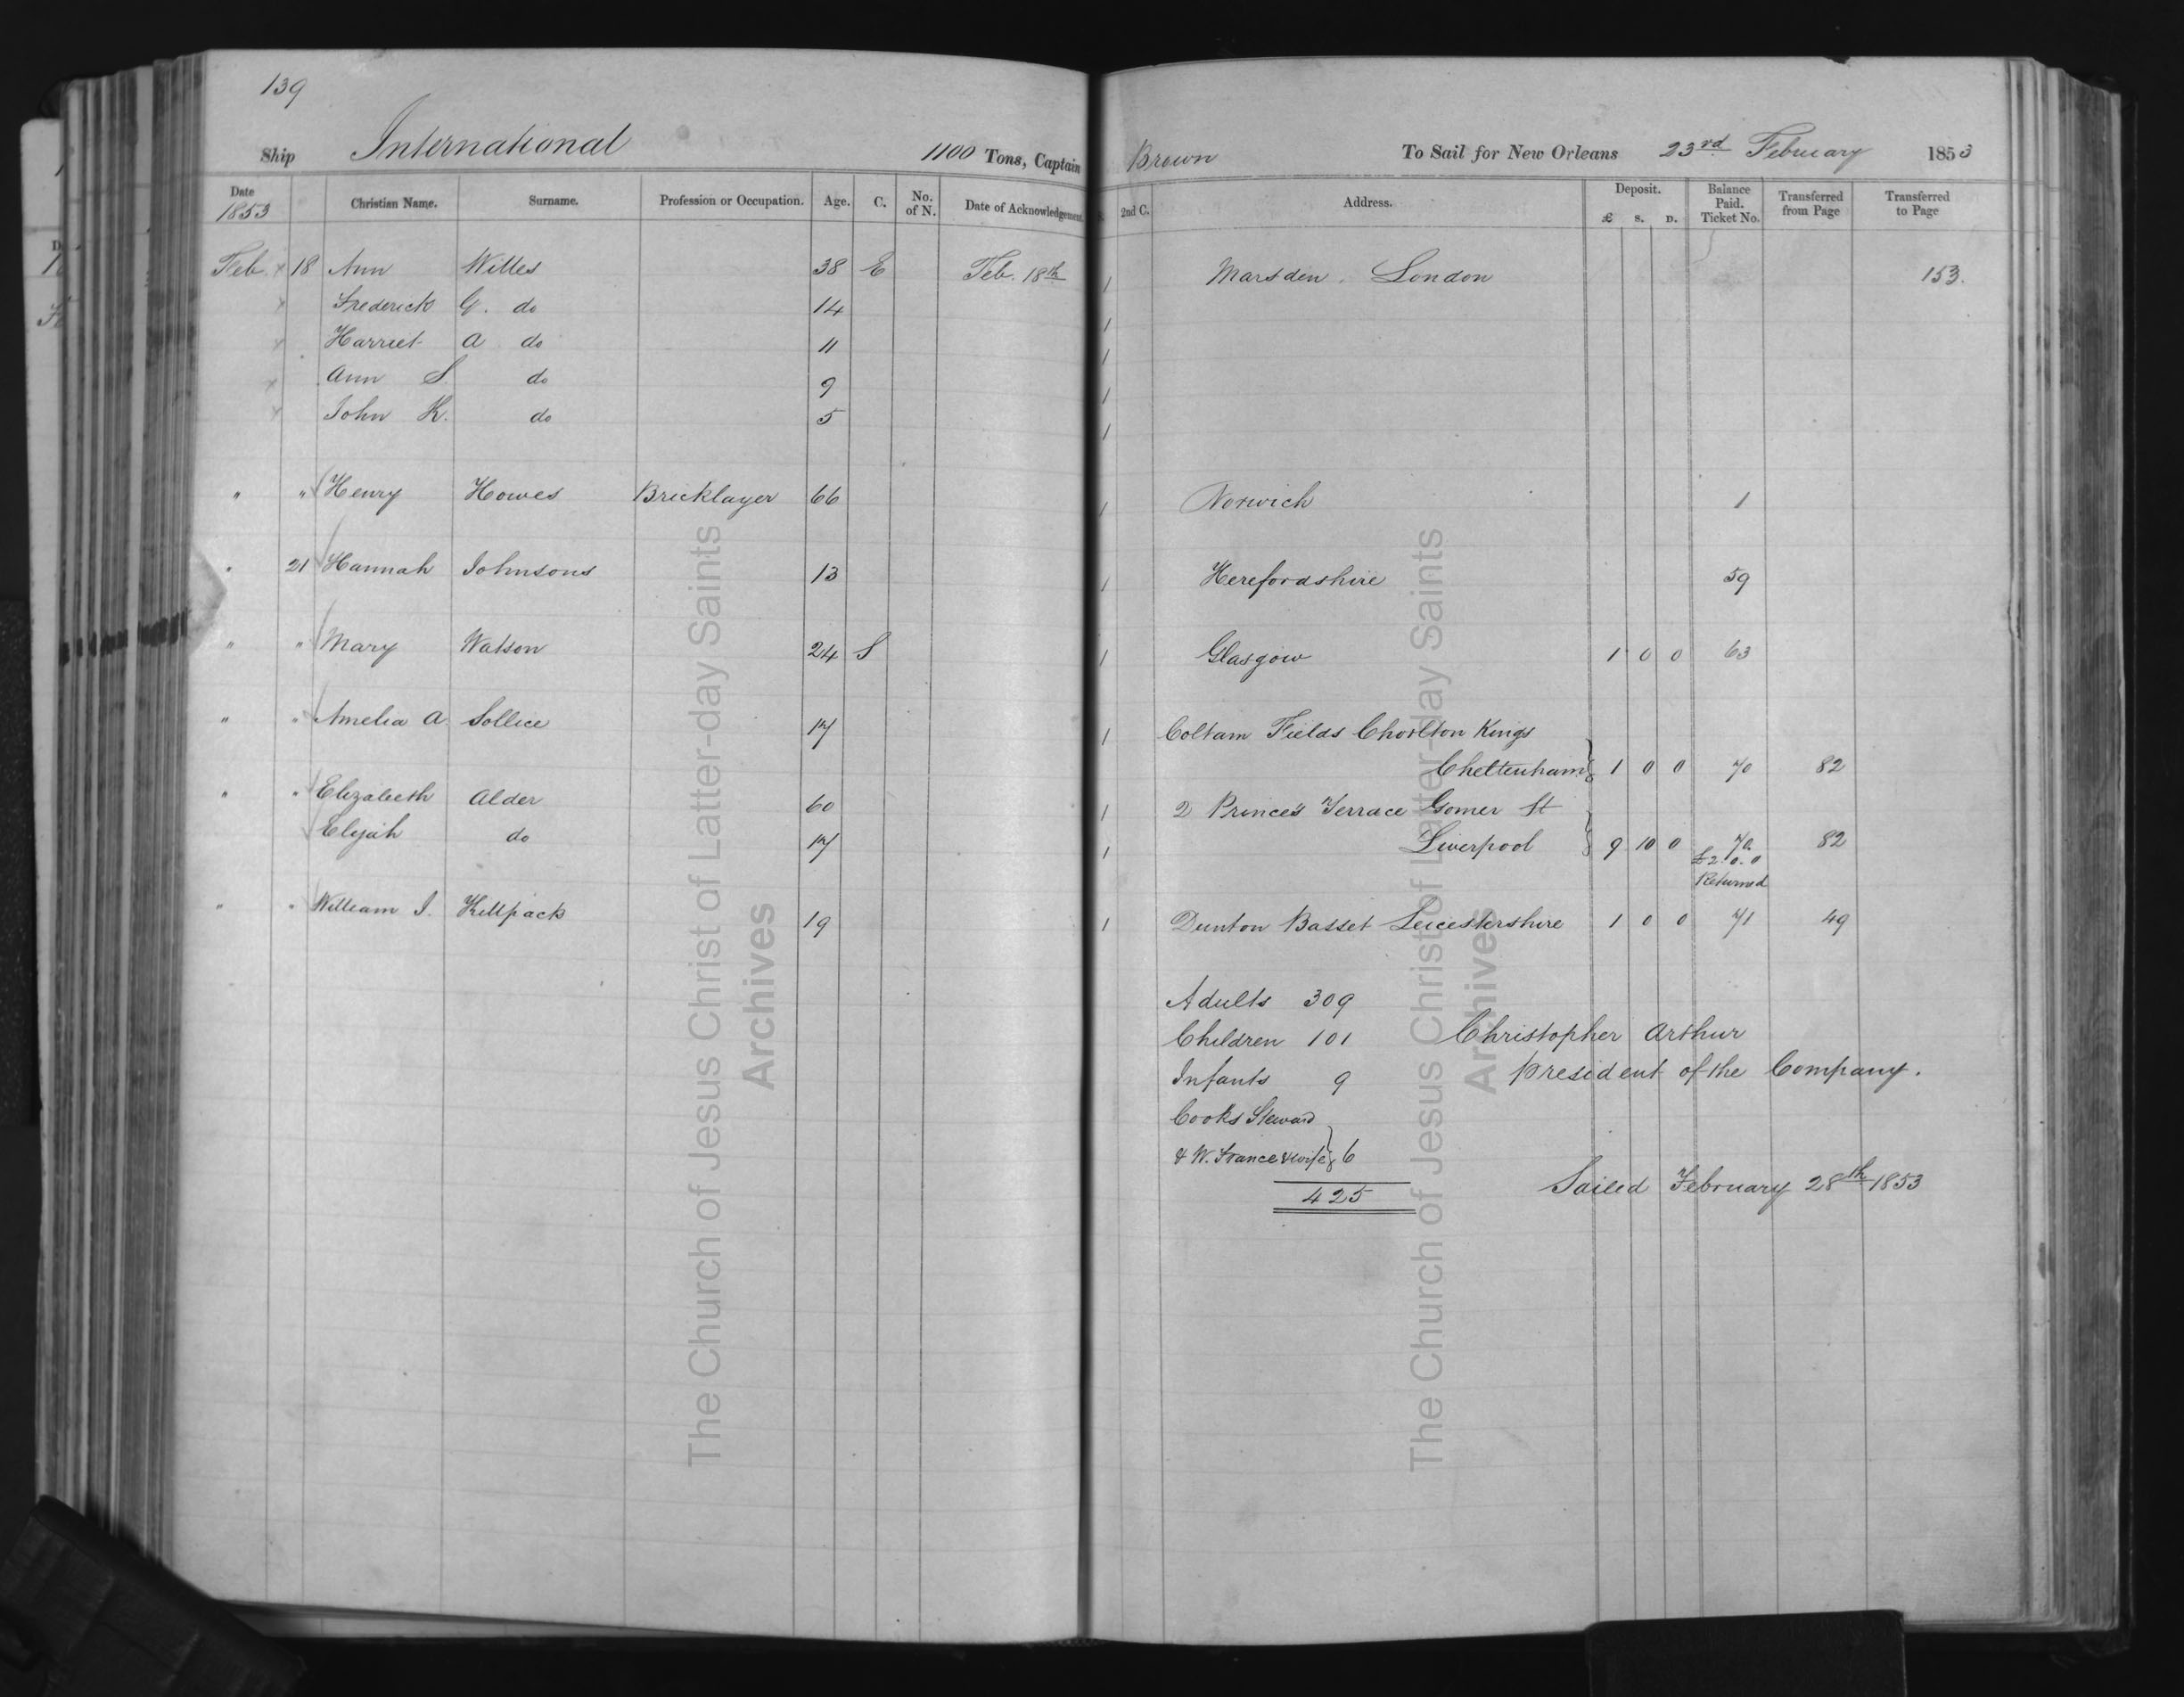 139
Ship International 1100 Tons, Captain Brown To Sail for New Orleans 23rd February 1853
Date 1853 Christian Name. Surname. Profession or Occupation. Age. C. No. of N. Date of Acknowledgement. 2nd C. Address. Deposit. £ S. D. Balance Paid. Ticket No. Transferred from Page Transferred to Page
Feb. x 18 Ann Willes 38 E Feb. 18th 1 Marsden. London 153.
x Frederick G. do 14 1
x Harriet A do 11 1
x Ann S. do 9 1
x John K. do 5 1
" " Henry Howes Bricklayer 66 1 Norwich 1
" 21 Hannah Johnsons 13 1 Herefordshire 59
" " Mary Watson 24 S 1 Glasgow 1 0 0 63
" " Amelia A. Sollice 17 1 Coltam Fields Chorlton Kings
Cheltenham 1 0 0 70 82
" " Elizabeth Alder 60 1 2 Prince's Terrace Gomer St
Elijah do 17 1 Liverpool 9 10 0 70 82
£2. 0. 0
Returned
" " William J. Killpack 19 1 Dunton Basset Leicestershire 1 0 0 71 49
Adults 309
Children 101 Christopher Arthur
Infants 9 President of the Company.
Cooks Steward
& W. France & wife 6
425 Sailed February 28th 1853
The Church of Jesus Christ of Latter-day Saints
Archives
The Church of Jesus Christ of Latter-day Saints
Archives